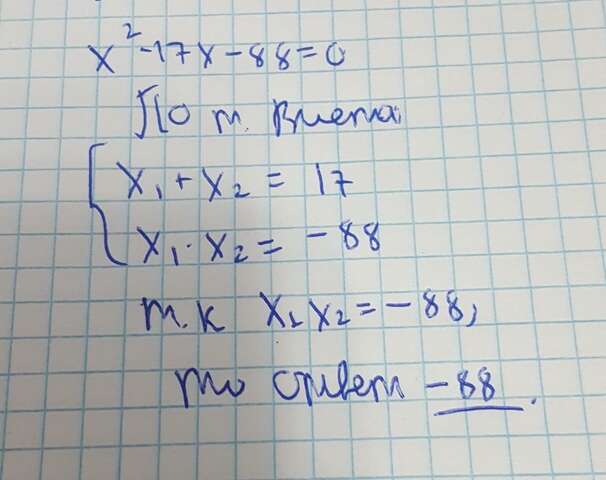 x²-17x-88=0
По т. Виета
{ x₁ + x₂ = 17
x₁ · x₂ = -88
т.к x₁ x₂ = -88,
то ответ -88.